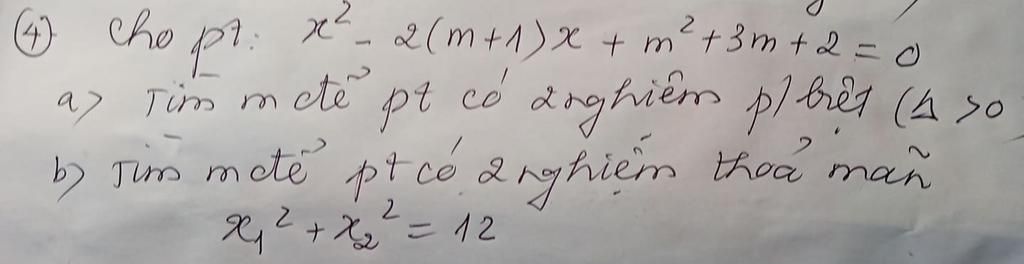 ④ Cho pt: x² - 2(m+1)x + m² + 3m + 2 = 0
a> Tìm m để pt có 2 nghiệm p/biệt (Δ > 0
b) Tìm m để pt có 2 nghiệm thoả mãn
x₁² + x₂² = 12